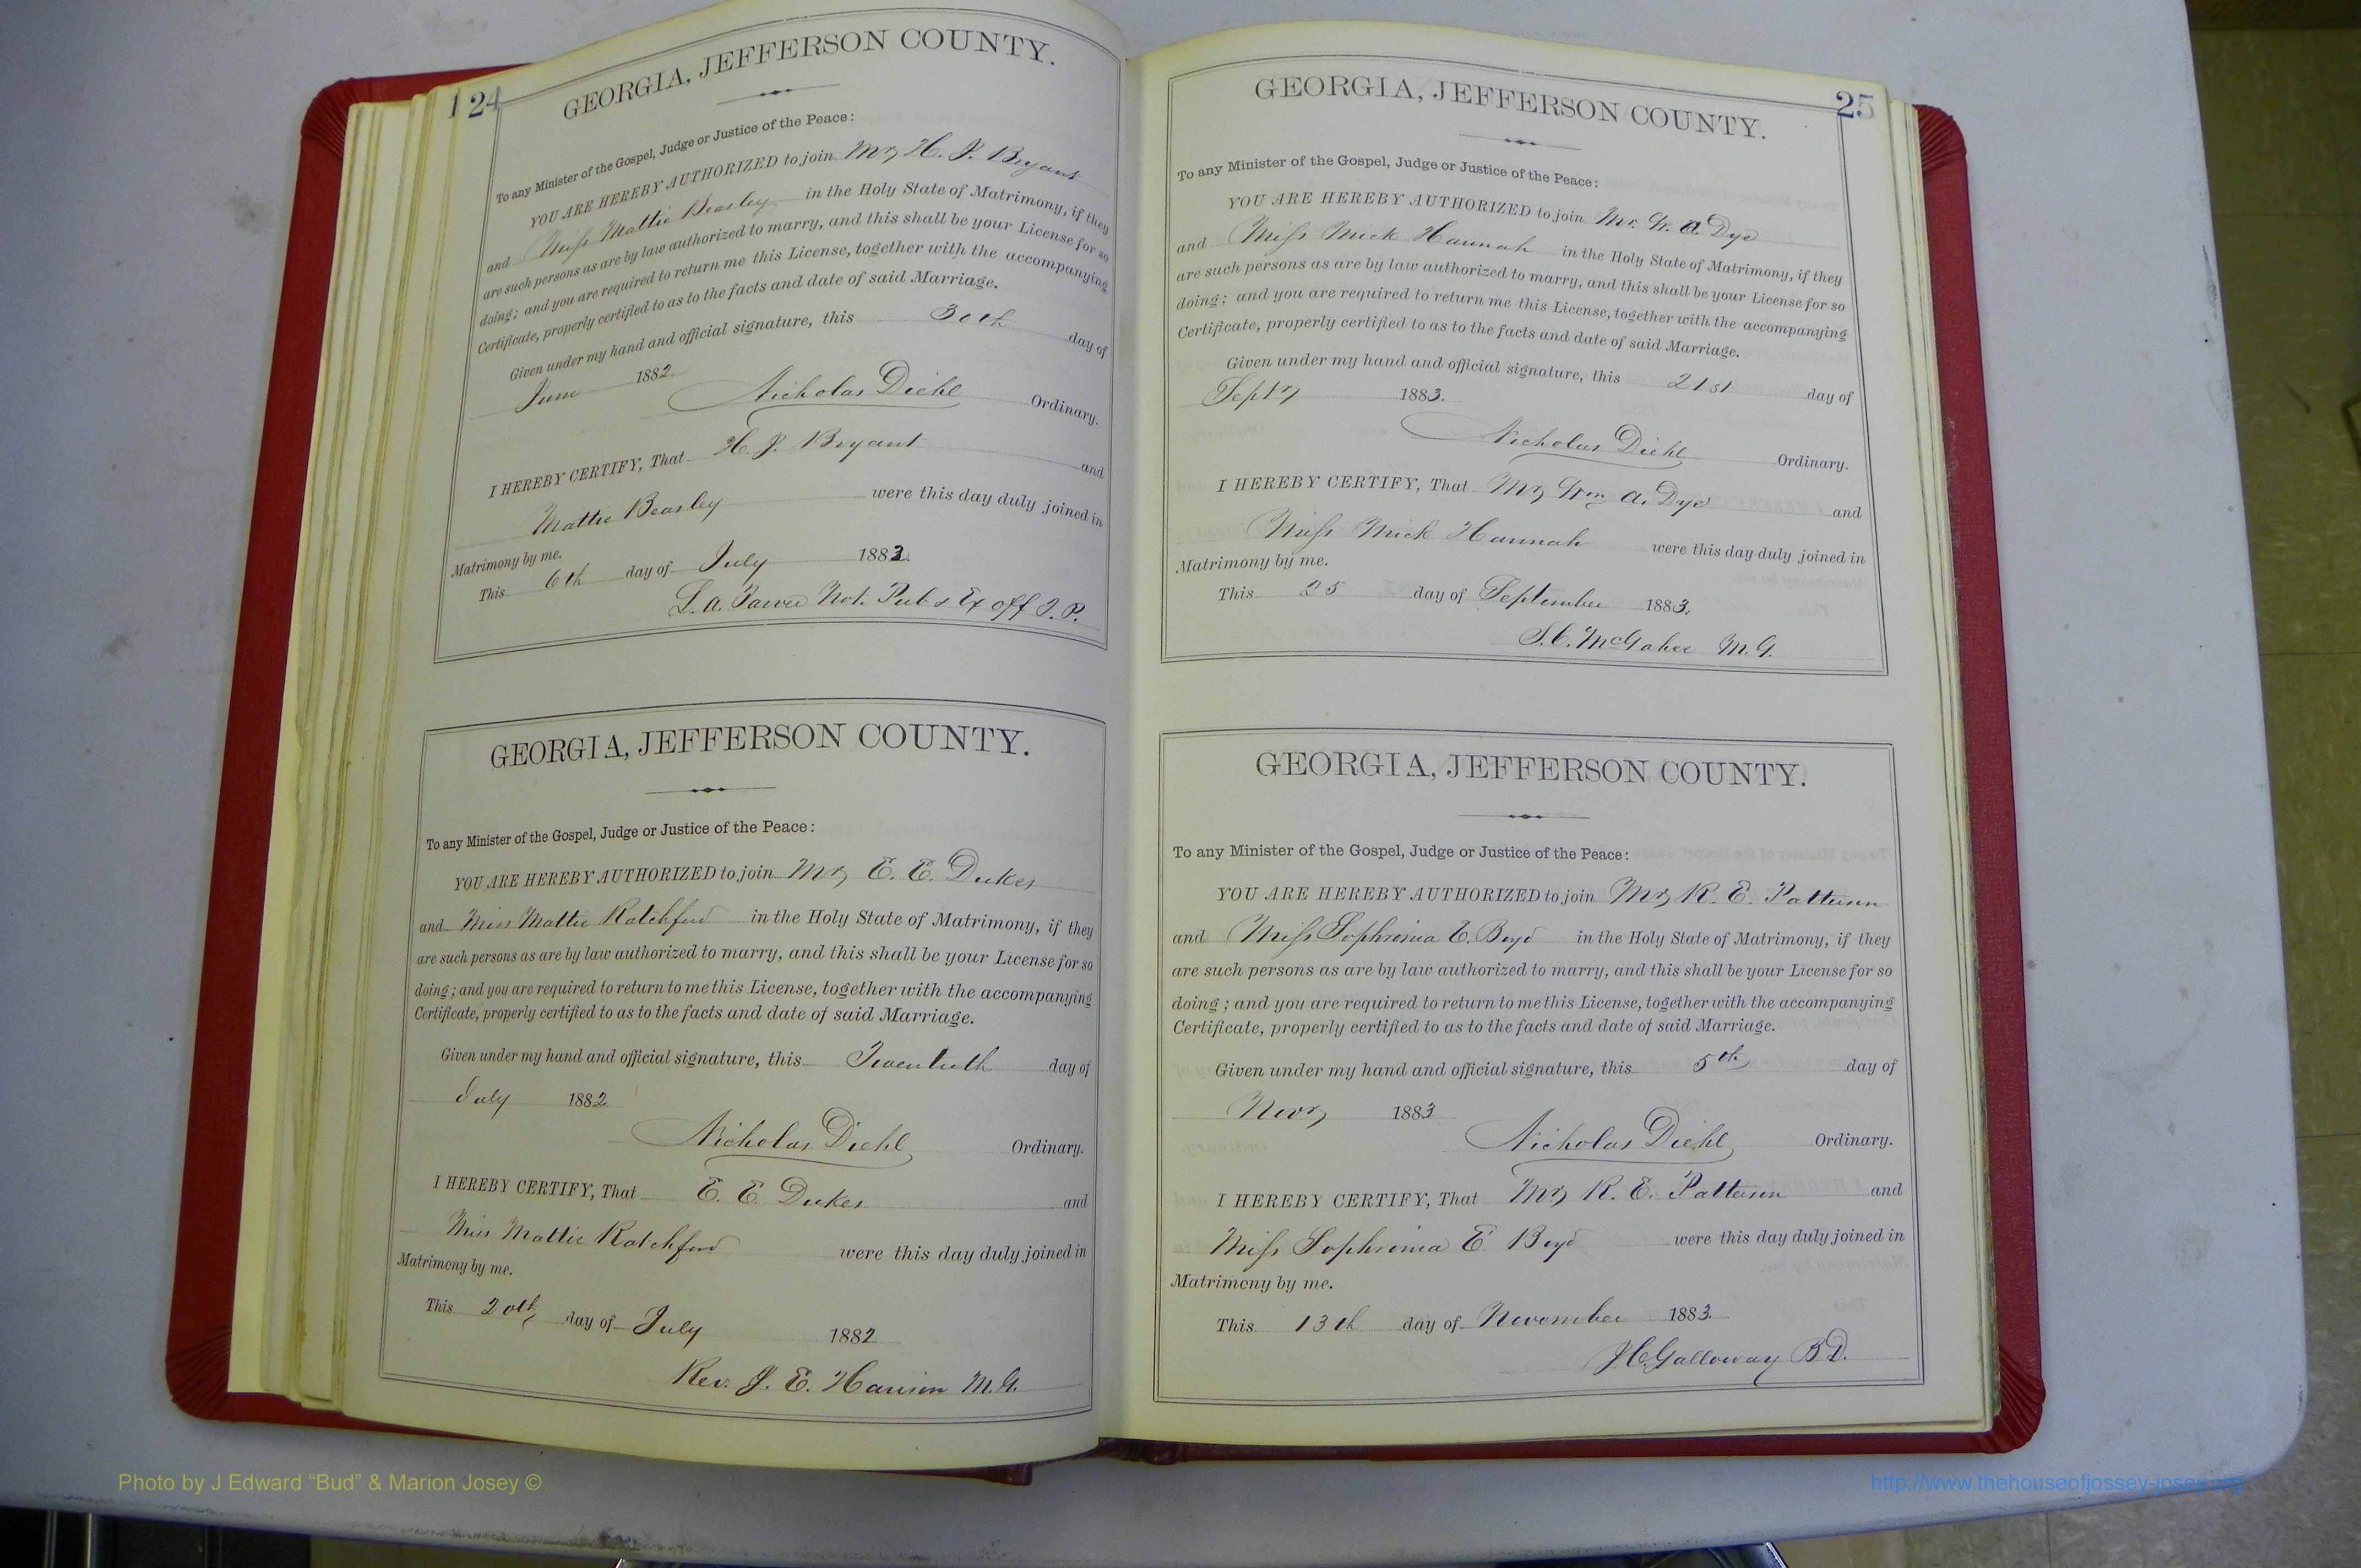 124
GEORGIA, JEFFERSON COUNTY.
To any Minister of the Gospel, Judge or Justice of the Peace:
YOU ARE HEREBY AUTHORIZED to join Mr H. J. Bryant
and Miss Mattie Beasley in the Holy State of Matrimony, if they
are such persons as are by law authorized to marry, and this shall be your License for so
doing; and you are required to return me this License, together with the accompanying
Certificate, properly certified to as to the facts and date of said Marriage.
Given under my hand and official signature, this 30th day of
June 1882.
Nicholas Diehl Ordinary.
I HEREBY CERTIFY, That H. J. Bryant and
Mattie Beasley were this day duly joined in
Matrimony by me.
This 6th day of July 1882.
L. A. Not. Pub & Ex off J. P.
GEORGIA, JEFFERSON COUNTY.
To any Minister of the Gospel, Judge or Justice of the Peace:
YOU ARE HEREBY AUTHORIZED to join Mr E. E. Dukes
and Miss Mattie Ratchford in the Holy State of Matrimony, if they
are such persons as are by law authorized to marry, and this shall be your License for so
doing; and you are required to return to me this License, together with the accompanying
Certificate, properly certified to as to the facts and date of said Marriage.
Given under my hand and official signature, this Twentieth day of
July 1882
Nicholas Diehl Ordinary.
I HEREBY CERTIFY, That E. E. Dukes and
Miss Mattie Ratchford were this day duly joined in
Matrimony by me.
This 20th day of July 1882
Rev. J. E. M. G.
25
GEORGIA, JEFFERSON COUNTY.
To any Minister of the Gospel, Judge or Justice of the Peace:
YOU ARE HEREBY AUTHORIZED to join Mr. W. A. Dye
and Miss Mick Hannah in the Holy State of Matrimony, if they
are such persons as are by law authorized to marry, and this shall be your License for so
doing; and you are required to return me this License, together with the accompanying
Certificate, properly certified to as to the facts and date of said Marriage.
Given under my hand and official signature, this 21st day of
Septr 1883.
Nicholas Diehl Ordinary.
I HEREBY CERTIFY, That Mr Wm A. Dye and
Miss Mick Hannah were this day duly joined in
Matrimony by me.
This 25 day of September 1883.
S. C. McGahee M. G.
GEORGIA, JEFFERSON COUNTY.
To any Minister of the Gospel, Judge or Justice of the Peace:
YOU ARE HEREBY AUTHORIZED to join Mr R. E. Patterson
and Miss Sophronia E. Boyd in the Holy State of Matrimony, if they
are such persons as are by law authorized to marry, and this shall be your License for so
doing; and you are required to return to me this License, together with the accompanying
Certificate, properly certified to as to the facts and date of said Marriage.
Given under my hand and official signature, this 5th day of
Novr 1883
Nicholas Diehl Ordinary.
I HEREBY CERTIFY, That Mr R. E. Patterson and
Miss Sophronia E. Boyd were this day duly joined in
Matrimony by me.
This 13th day of November 1883.
J C Galloway B D.
Photo by J Edward “Bud” & Marion Josey ©
http://www.thehouseofjossey-josey.org